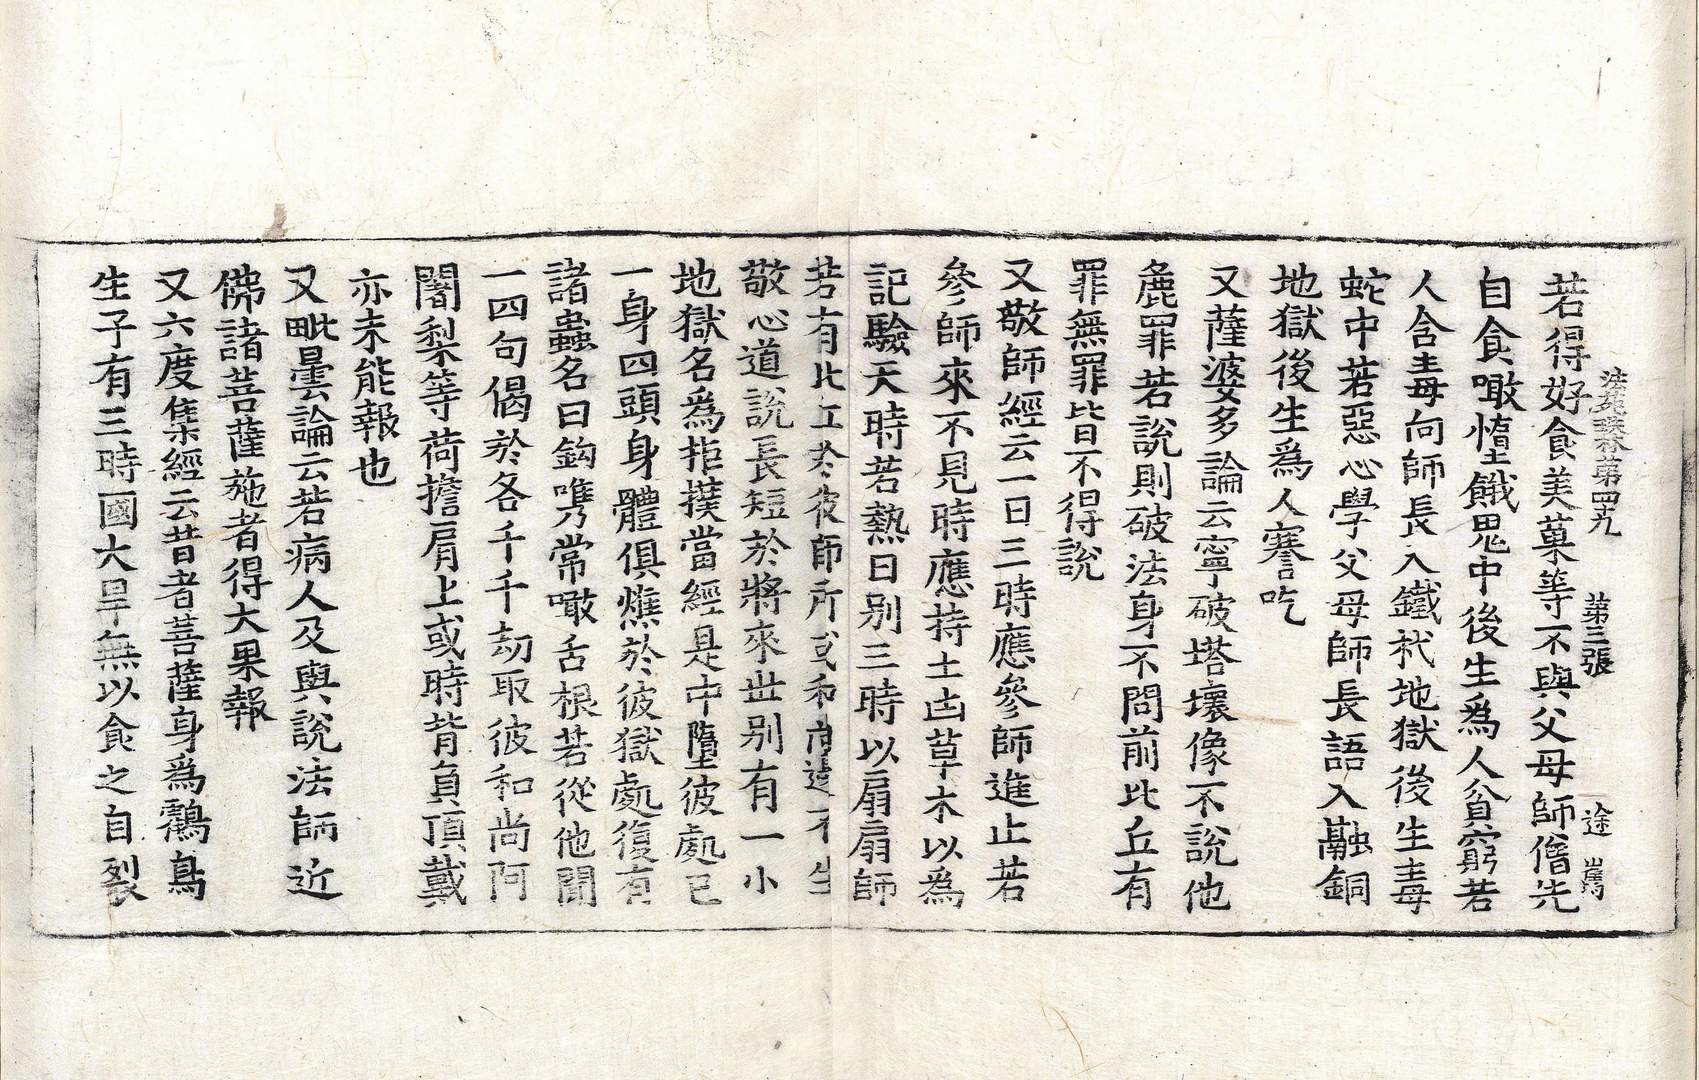 法苑珠林第四十九　第三張　途
若得好食美菓等不與父母師僧先
自食噉墮餓鬼中後生爲人貧窮若
人含毒向師長入鐵杙地獄後生毒
蛇中若惡心學父母師長語入融銅
地獄後生爲人謇吃
又薩婆多論云寧破塔壞像不說他
麁罪若說則破法身不問前比丘有
罪無罪皆不得說
又敬師經云一日三時應參師進止若
參師來不見時應持土凷草木以爲
記驗天時若熱日別三時以扇扇師
若有比丘於彼師所或和尚邊不生
敬心道說長短於將來世别有一小
地獄名爲拒撲當經是中墮彼處已
一身四頭身體俱燋於彼獄處復有
諸蟲名曰鈎嘴常噉舌根若從他聞
一四句偈於各千千劫取彼和尚阿
闍梨等荷擔肩上或時背負頂戴
亦未能報也
又毗曇論云若病人及與說法師近
佛諸菩薩施者得大果報
又六度集經云昔者菩薩身爲鸛鳥
生子有三時國大旱無以食之自裂